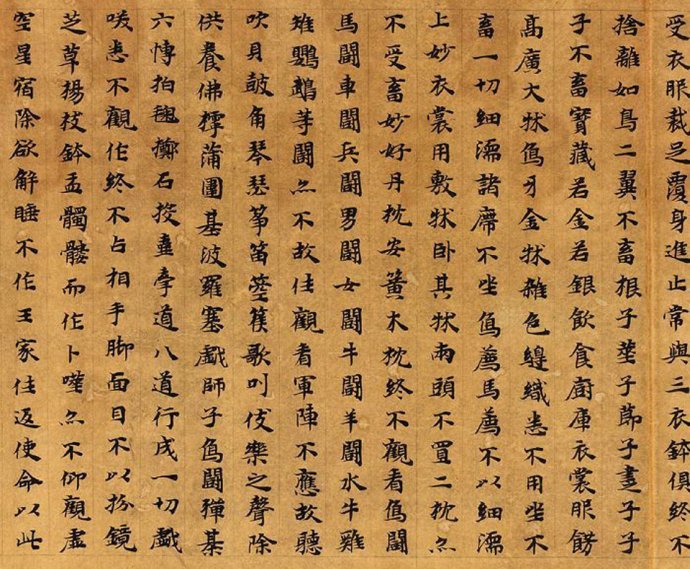 受衣服裁足覆身進止常與三衣鉢俱終不
捨離如鳥二翼不畜根子莖子莭子子子
子不畜寶藏若金若銀飲食廚庫衣裳服餝
高廣大牀象牙金牀雜色綖織悉不用坐不
畜一切細濡諸席不坐象薦馬薦不以細濡
上妙衣裳用敷牀卧其牀兩頭不置二枕亦
不受畜妙好丹枕安簧木枕終不觀看象鬪
馬鬪車鬪兵鬪男鬪女鬪牛鬪羊鬪水牛雞
雉鸚鵡等鬪亦不故往觀看軍陣不應故聽
吹貝皷角琴瑟箏笛箜篌歌叫伎樂之聲除
供養佛摴蒲圍碁波羅塞戲師子象鬪彈碁
六博拍毱擲石投壺牽道八道行成一切戲
唉悉不觀作終不占相手脚面目不以抓鏡
芝草楊枝鉢盂髑髏而作卜筮亦不仰觀虛
空星宿除欲解睡不作王家往返使命以此